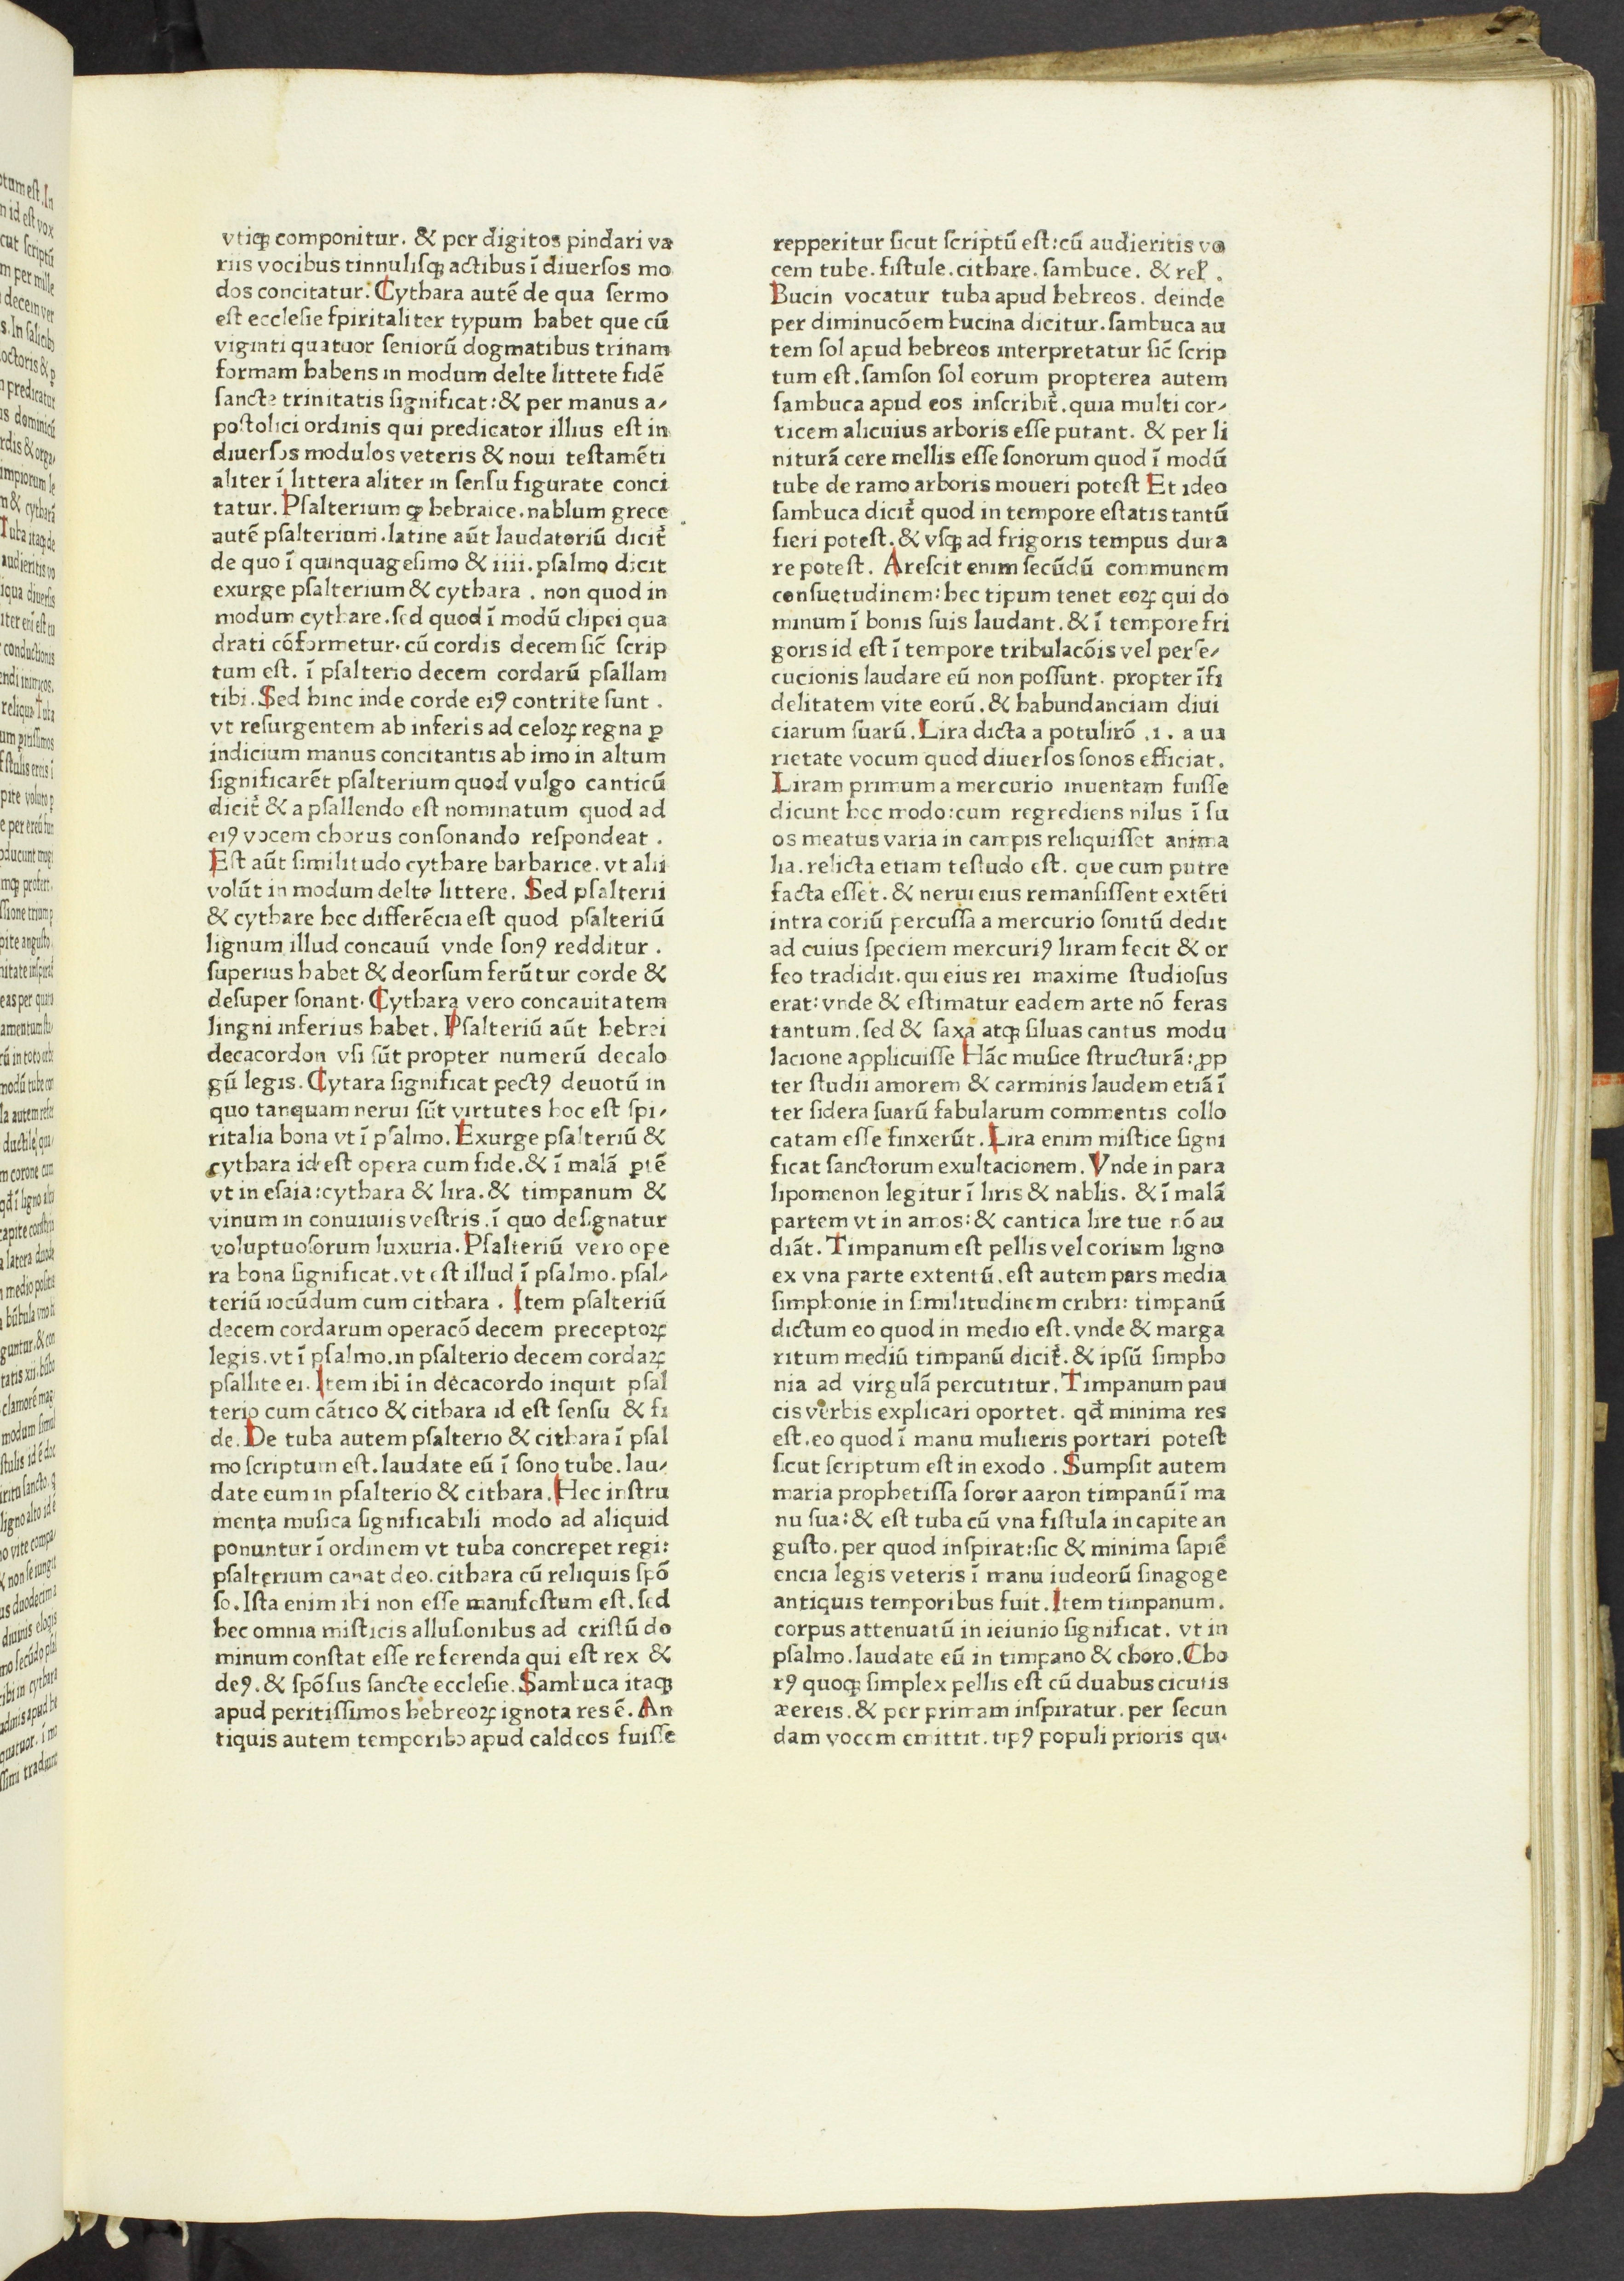 vtiqꝫ componitur. & per digitos pindari va
riis vocibus tinnulisqꝫ actibus ī diuersos mo
dos concitatur. Cythara autē de qua sermo
est ecclesie spiritaliter typum habet que cū
viginti quatuor seniorū dogmatibus trinam
formam habens in modum delte littete fidē
sancte trinitatis significat: & per manus a⸗
postolici ordinis qui predicator illius est in
diuersos modulos veteris & noui testamēti
aliter ī littera aliter in sensu figurate conci
tatur. Psalterium ꝙ hebraice. nablum grece
autē psalterium. latine aūt laudatoriū dicit᷑
de quo ī quinquagesimo & iiii. psalmo dicit
exurge psalterium & cythara . non quod in
modum cythare. sed quod ī modū clipei qua
drati cōformetur. cū cordis decem sic̄ scrip
tum est. ī psalterio decem cordarū psallam
tibi. Sed hinc inde corde eiꝰ contrite sunt .
vt resurgentem ab inferis ad celoꝝ regna ꝑ
indicium manus concitantis ab imo in altum
significarēt psalterium quod vulgo canticū
dicit᷑ & a psallendo est nominatum quod ad
eiꝰ vocem chorus consonando respondeat .
Est aūt similitudo cythare barbarice. vt alii
volūt in modum delte littere. Sed psalterii
& cythare hec differēcia est quod psalteriū
lignum illud concauū vnde sonꝰ redditur .
superius habet & deorsum ferūtur corde &
desuper sonant. Cythara vero concauitatem
lingni inferius habet. Psalteriū aūt hebrei
decacordon vsi sūt propter numerū decalo
gū legis. Cytara significat pectꝰ deuotū in
quo tanquam nerui sūt virtutes hoc est spi⸗
ritalia bona vt ī psalmo. Exurge psalteriū &
cythara id est opera cum fide. & ī malā ꝑtē
vt in esaia: cythara & lira. & timpanum &
vinum in conuiuiis vestris. ī quo designatur
voluptuosorum luxuria. Psalteriū vero ope
ra bona significat. vt est illud ī psalmo. psal⸗
teriū iocūdum cum cithara . Item psalteriū
decem cordarum operacō decem preceptoꝝ
legis. vt ī psalmo. in psalterio decem cordaꝝ
psallite ei. Item ibi in decacordo inquit psal
terio cum cātico & cithara id est sensu & fi
de. De tuba autem psalterio & cithara ī psal
mo scriptum est. laudate eū ī sono tube. lau⸗
date eum in psalterio & cithara. Hec instru
menta musica significabili modo ad aliquid
ponuntur ī ordinem vt tuba concrepet regi:
psalterium canat deo. cithara cū reliquis spō
so. Ista enim ibi non esse manifestum est. sed
hec omnia misticis allusonibus ad cristū do
minum constat esse referenda qui est rex &
deꝰ. & spōsus sancte ecclesie. Sambuca itaqꝫ
apud peritissimos hebreoꝝ ignota res ē. An
tiquis autem temporibꝰ apud caldeos fuisse
repperitur sicut scriptū est: cū audieritis vo
cem tube. fistule. cithare. sambuce. & rel̄ .
Bucin vocatur tuba apud hebreos. deinde
per diminucōem bucina dicitur. sambuca au
tem sol apud hebreos interpretatur sic̄ scrip
tum est. samson sol eorum propterea autem
sambuca apud eos inscribit᷑. quia multi cor⸗
ticem alicuius arboris esse putant. & per li
niturā cere mellis esse sonorum quod ī modū
tube de ramo arboris moueri potest Et ideo
sambuca dicit᷑ quod in tempore estatis tantū
fieri potest. & vsqꝫ ad frigoris tempus dura
re potest. Arescit enim secūdū communem
consuetudinem: hec tipum tenet eoꝝ qui do
minum ī bonis suis laudant. & ī tempore fri
goris id est ī tempore tribulacōis vel perse⸗
cucionis laudare eū non possunt. propter īfi
delitatem vite eorū. & habundanciam diui
ciarum suarū. Lira dicta a potulirō .i. a ua
rietate vocum quod diuersos sonos efficiat.
Liram primum a mercurio inuentam fuisse
dicunt hoc modo: cum regrediens nilus ī su
os meatus varia in campis reliquisset anima
lia. relicta etiam testudo est. que cum putre
facta esset. & nerui eius remansissent extēti
intra coriū percussa a mercurio sonitū dedit
ad cuius speciem mercuriꝰ liram fecit & or
feo tradidit. qui eius rei maxime studiosus
erat: vnde & estimatur eadem arte nō feras
tantum. sed & saxa atqꝫ siluas cantus modu
lacione applicuisse Hāc musice structurā: ꝓp
ter studii amorem & carminis laudem etiā ī
ter sidera suarū fabularum commentis collo
catam esse finxerūt. Lira enim mistice signi
ficat sanctorum exultacionem. Vnde in para
lipomenon legitur ī liris & nablis. & ī malā
partem vt in amos: & cantica lire tue nō au
diāt. Timpanum est pellis vel corium ligno
ex vna parte extentū. est autem pars media
simphonie in similitudinem cribri: timpanū
dictum eo quod in medio est. vnde & marga
ritum mediū timpanū dicit᷑. & ipsū simpho
nia ad virgulā percutitur. Timpanum pau
cis verbis explicari oportet. qd̄ minima res
est. eo quod ī manu mulieris portari potest
sicut scriptum est in exodo . Sumpsit autem
maria prophetissa soror aaron timpanū ī ma
nu sua: & est tuba cū vna fistula in capite an
gusto. per quod inspirat: sic & minima sapiē
encia legis veteris ī manu iudeorū sinagoge
antiquis temporibus fuit. Item timpanum.
corpus attenuatū in ieiunio significat. vt in
psalmo. laudate eū in timpano & choro. Cho
rꝰ quoqꝫ simplex pellis est cū duabus cicutis
æereis. & per primam inspiratur. per secun
dam vocem emittit. tipꝰ populi prioris qui